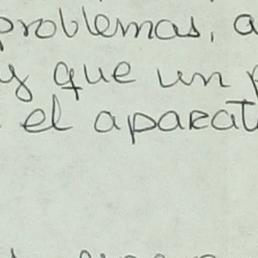 problemas, a
y que un p
el aparat